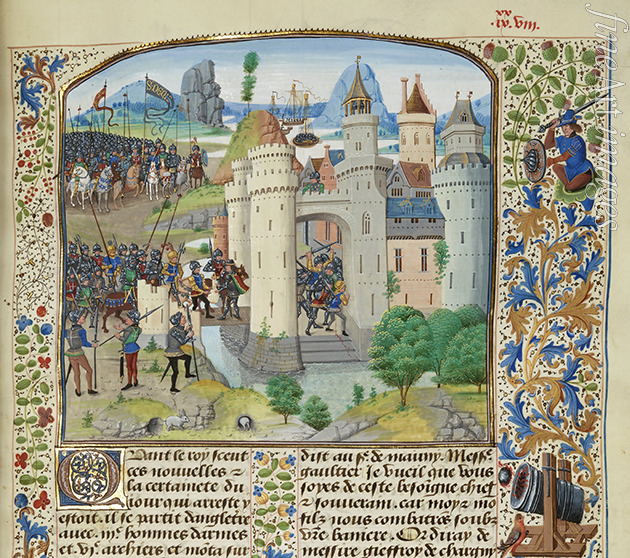 xx
iv.viii.
Quant le roy sceut
ces nouuelles z
la certainete du
iour qui arreste y
estoit. il se partit dangletre
auec .iijc hommes darmes
et .vic archiers et mota sur
dist au sr. de mauny. Messe
gaultier je vueil que vous
soyes de ceste besoigne chief
z souuerain. car moy z mo
filz nous combatros soubz
vre baniere. Or diray de
messire gieffroy de chargny
fineartimages